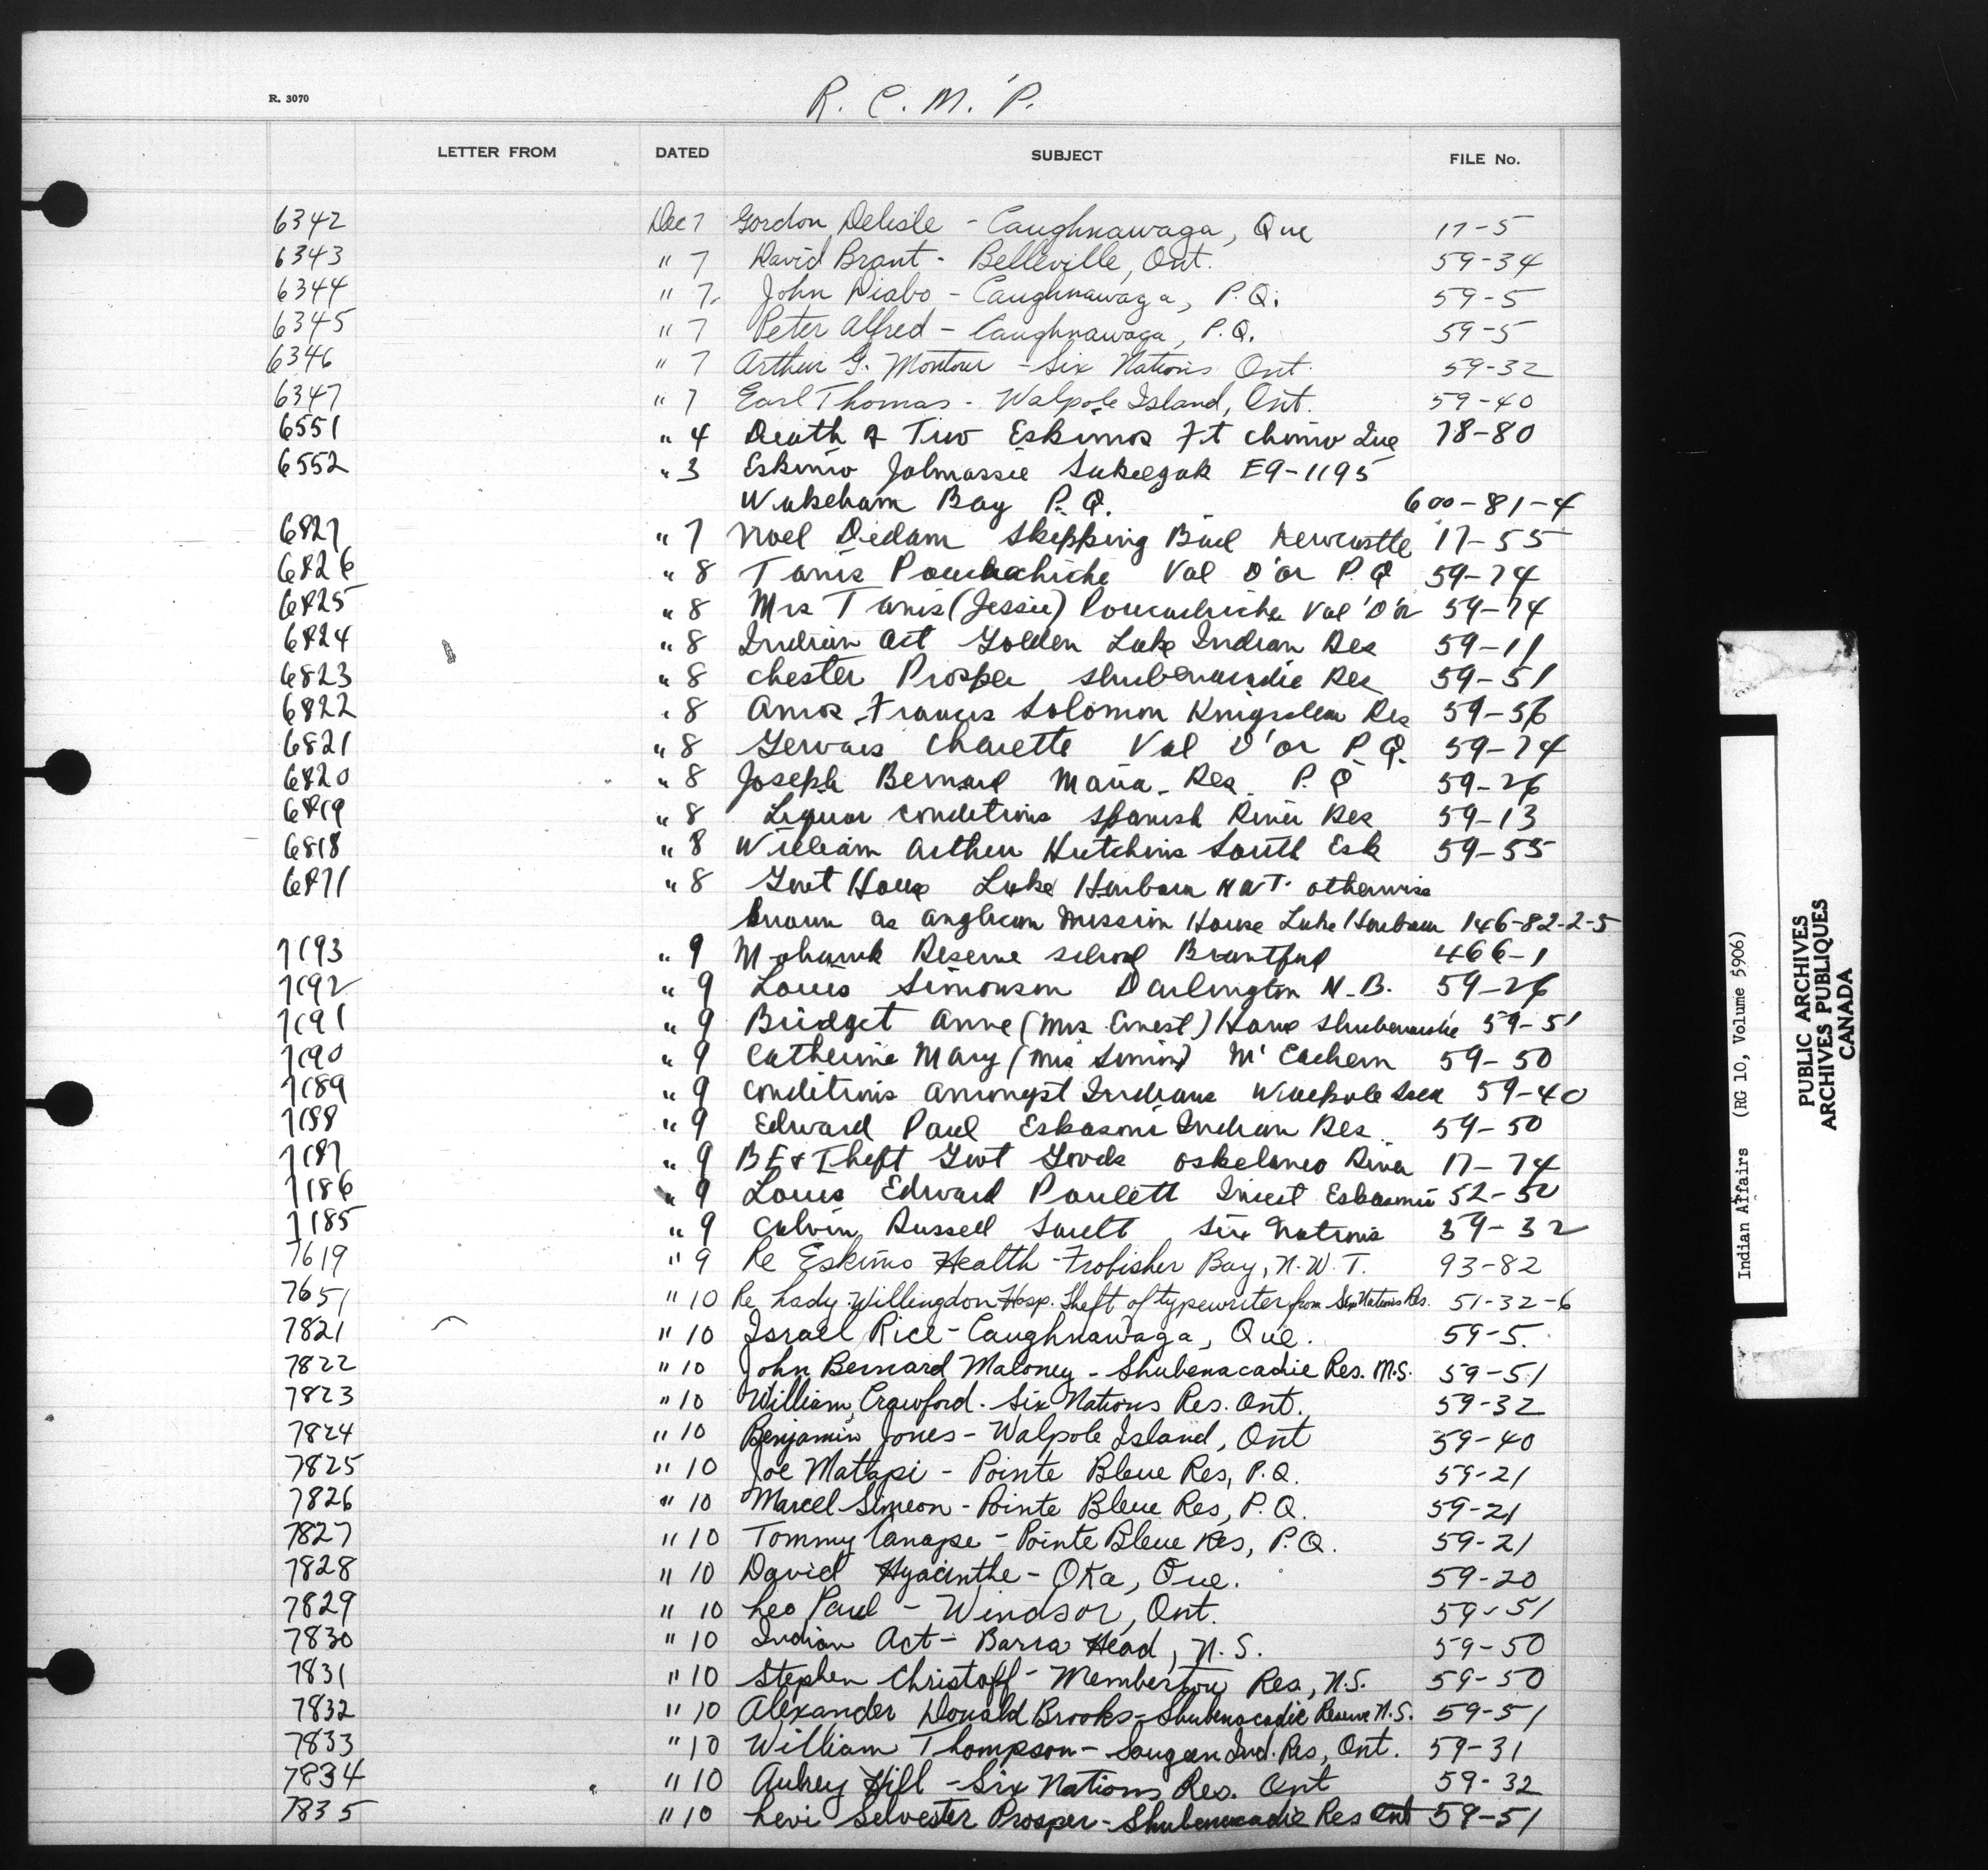 R. 3070
R. C. M. P.
LETTER FROM DATED SUBJECT FILE No.
6342 Dec 7 Gordon Delisle - Caughnawaga, Que 17-5
6343 " 7 David Brant - Belleville, Ont. 59-34
6344 " 7 John Diabo - Caughnawaga, P.Q. 59-5
6345 " 7 Peter Alfred - Caughnawaga, P.Q. 59-5
6346 " 7 Arthur G. Montour - Six Nations Ont. 59-32
6347 " 7 Earl Thomas - Walpole Island, Ont. 59-40
6551 " 4 Death of Two Eskimos Ft Chimo Que 78-80
6552 " 3 Eskimo E9-1195
Wakeham Bay P.Q. 600-81-4
6827 " 7 Noel Dedam Skipping Bail Newcastle 17-55
6826 " 8 Tanis Val D'or P.Q 59-74
6825 " 8 Mrs Tanis (Jessie) Val D'or 59-74
6824 " 8 Indian Act Golden Lake Indian Res 59-11
6823 " 8 Chester Prosper Shubenacadie Res 59-51
6822 " 8 Amos Francis Solomon Kingsclear Res 59-56
6821 " 8 Gervais Charette Val D'or P.Q. 59-74
6820 " 8 Joseph Bernard Maria Res P.Q 59-26
6819 " 8 Liquor conditions Spanish River Res 59-13
6818 " 8 William Arthur Hutchins South Esk 59-55
6871 " 8 Govt House Lake Harbour N W T. otherwise
known as Anglican Mission House Lake Harbour 146-82-2-5
7193 " 9 Mohawk Reserve school Brantford 466-1
7192 " 9 Louis Simonson Darlington N.B. 59-26
7191 " 9 Bridget Anne (Mrs Ernest) Howe Shubenacadie 59-51
7190 " 9 Catherine Mary (Mrs Simon) McEachern 59-50
7189 " 9 Conditions amongst Indians Walpole Isld 59-40
7188 " 9 Edward Paul Eskasoni Indian Res 59-50
7187 " 9 B E & Theft Govt Goods Oskelaneo River 17-74
7186 " 9 Louis Edward Paulett Incest Eskasoni 52-50
7185 " 9 Calvin Russell Sault Six Nations 59-32
7619 " 9 Re Eskimo Health - Frobisher Bay, N.W.T. 93-82
7651 " 10 Re Lady Willingdon Hosp. Theft of typewriter from Six Nations Res. 51-32-6
7821 " 10 Israel Rice - Caughnawaga, Que. 59-5.
7822 " 10 John Bernard Maloney - Shubenacadie Res. N.S. 59-51
7823 " 10 William Crawford - Six Nations Res. Ont. 59-32
7824 " 10 Benjamin Jones - Walpole Island, Ont 59-40
7825 " 10 Joe Matapi - Pointe Bleue Res, P.Q. 59-21
7826 " 10 Marcel Simeon - Pointe Bleue Res, P.Q. 59-21
7827 " 10 Tommy Canape - Pointe Bleue Res, P.Q. 59-21
7828 " 10 David Hyacinthe - Oka, Que. 59-20
7829 " 10 Leo Paul - Windsor, Ont. 59-51
7830 " 10 Indian Act - Barra Head, N.S. 59-50
7831 " 10 Stephen Christoff - Membertou Res, N.S. 59-50
7832 " 10 Alexander Donald Brooks - Shubenacadie Reserve N.S. 59-51
7833 " 10 William Thompson - Saugeen Ind. Res, Ont. 59-31
7834 " 10 Aubrey Hill - Six Nations Res. Ont 59-32
7835 " 10 Levi Selvester Prosper - Shubenacadie Res Ont 59-51
Indian Affairs (RG 10, Volume 5906)
PUBLIC ARCHIVES
ARCHIVES PUBLIQUES
CANADA